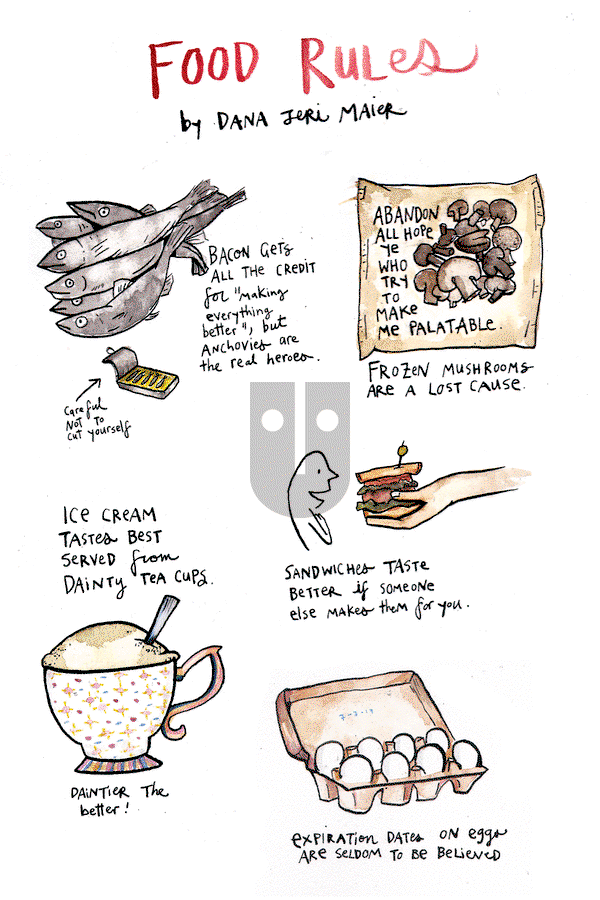 FOOD RULES
by DANA JERI MAIER
BACON GETS
ALL THE CREDIT
for "making
everything
better", but
ANCHOVIES are
the real heroes.
Careful
NOT TO
CUT yourself
ABANDON
ALL HOPE
YE
WHO
TRY
TO
MAKE
ME PALATABLE.
FROZEN MUSHROOMS
ARE A LOST CAUSE.
ICE CREAM
TASTES BEST
SERVED from
DAINTY TEA CUPS.
DAINTIER THE
better!
SANDWICHES TASTE
BETTER if SOMEONE
else MAKES them for you.
EXPIRATION DATES ON eggs
ARE SELDOM TO BE BELIEVED